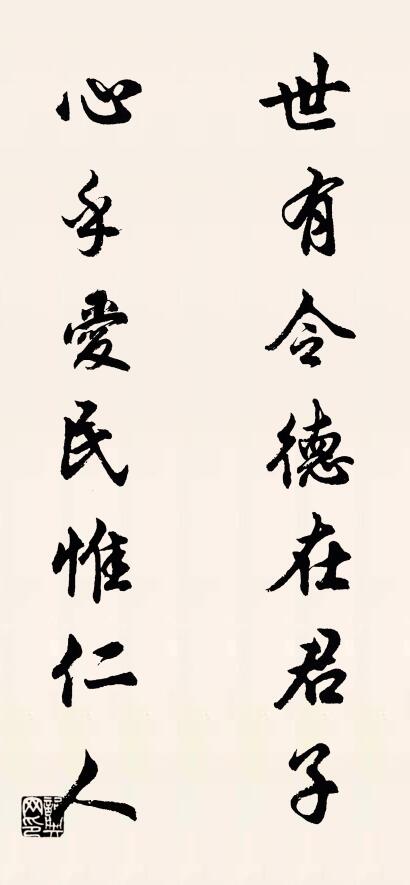 世有令德在君子
心乎愛民惟仁人